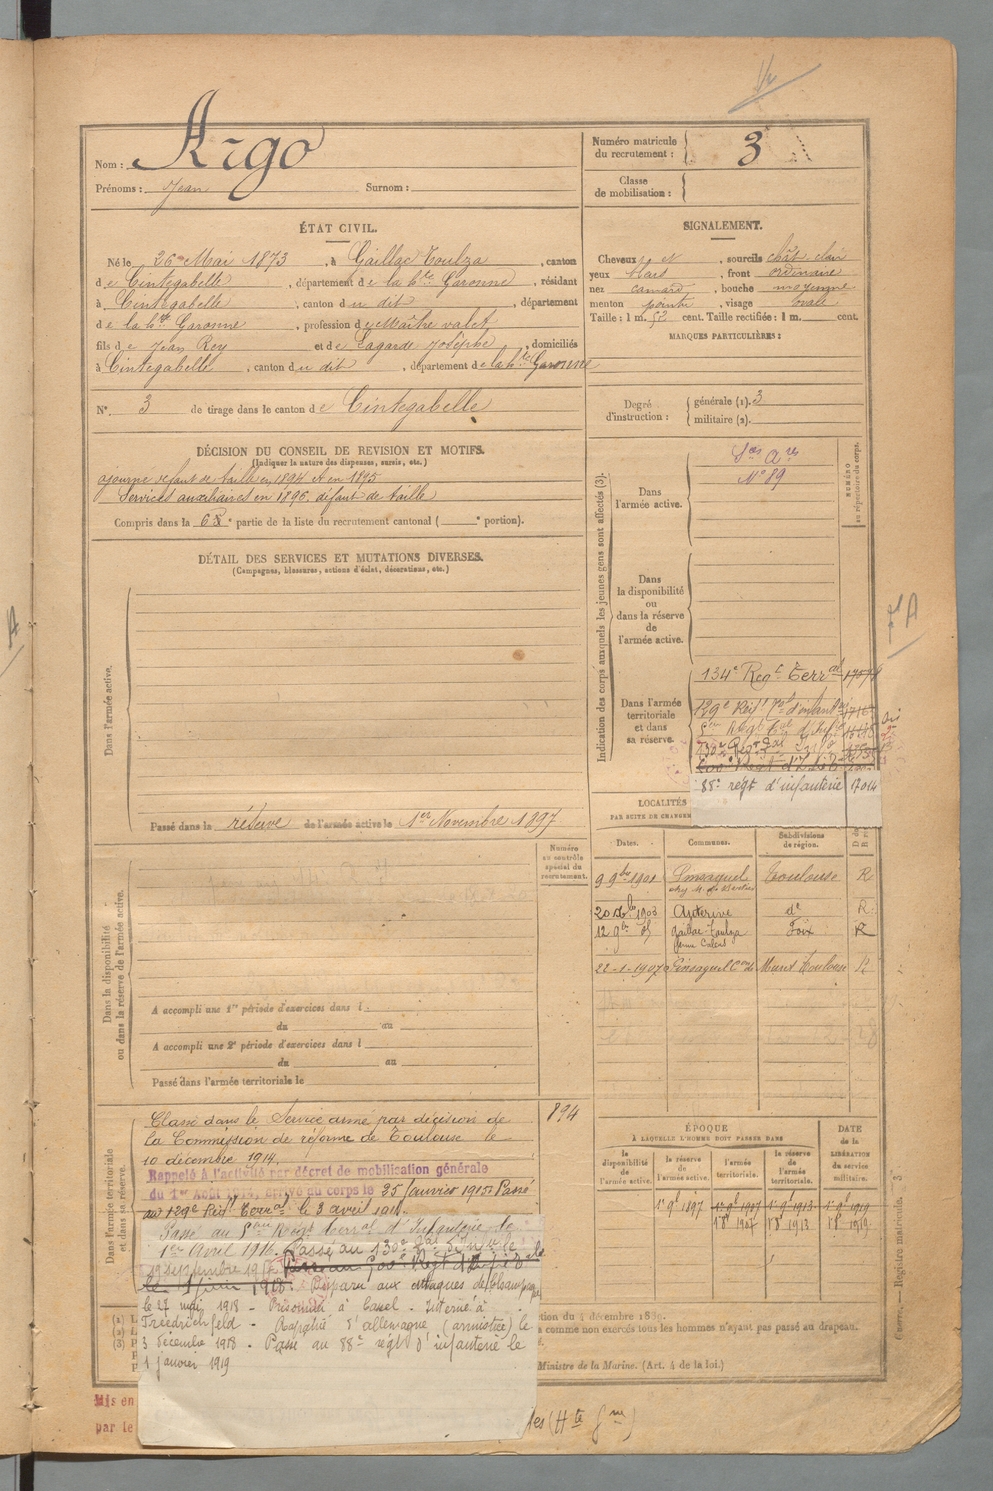 Argo
Nom :
Prénoms : Jean Surnom :
Numéro matricule du recrutement : 3
Classe de mobilisation :
ÉTAT CIVIL.
Né le 26 Mai 1873, à Gaillac Toulza, canton
de Cintegabelle, département de la Hte Garonne, résidant
à Cintegabelle, canton du dit, département
de la Hte Garonne, profession de Maître valet
fils de Jean Rey et de Lagarde Josèphe, domiciliés
à Cintegabelle, canton du dit, département de la hte Garonne
N°. 3 de tirage dans le canton de Cintegabelle
SIGNALEMENT.
Cheveux et, sourcils chât clair
yeux, front ordinaire
nez camard, bouche moyenne
menton pointu, visage ovale
Taille : 1 m. 52 cent. Taille rectifiée : 1 m. cent.
MARQUES PARTICULIÈRES :
Degré d'instruction : générale (1). 3
militaire (2).
DÉCISION DU CONSEIL DE REVISION ET MOTIFS.
(Indiquer la nature des dispenses, sursis, etc.)
ajourné défaut de taille en 1894 et en 1895
Services auxiliaires en 1896, défaut de taille
Compris dans la 6e partie de la liste du recrutement cantonal ( e portion).
DÉTAIL DES SERVICES ET MUTATIONS DIVERSES.
(Campagnes, blessures, actions d'éclat, décorations, etc.)
Dans l'armée active.
Passé dans la réserve de l'armée active le 1er Novembre 1897
Indication des corps auxquels les jeunes gens sont affectés (3).
NUMÉRO au répertoire du corps.
Dans l'armée active.
Ses Ares
N° 89
Dans la disponibilité ou dans la réserve de l'armée active.
Dans l'armée territoriale et dans sa réserve.
134e Regt Terral
129e
130e
88e regt d'infanterie 17014
LOCALITÉS
PAR SUITE DE CHANGEM
Dates. Communes. Subdivisions de région.
9 9bre 1901 Pinsaguel Toulouse R
20 1903 Auterive do R
12 9bre Gaillac-Toulza Foix R
22-1-1907 Pinsaguel Con de Muret Toulouse R
Numéro au contrôle spécial du recrutement.
Dans la disponibilité ou dans la réserve de l'armée active.
A accompli une 1re période d'exercices dans l
du au
A accompli une 2e période d'exercices dans l
du au
Passé dans l'armée territoriale le
Dans l'armée territoriale et dans sa réserve.
894
Classé dans le Service armé par décision de
la Commission de réforme de Toulouse le
10 décembre 1914.
Rappelé à l'activité par décret de mobilisation générale
du 1er Août 1914, arrivé au corps le 25 Janvier 1915. Passé
au 129e Régt Terral le 3 avril 1915.
Passé au Regt Terral d'Infanterie le
1er Avril 1916. Passé au 130e le
19 Septembre 1917. Passé au 500e Regt
le 1 juin 1918. Disparu aux attaques de Champagne
le 27 mai 1918 - Prisonnier à Cassel - Interné à
Friedrichfeld - Rapatrié d'allemagne (armistice) le
3 décembre 1918 - Passé au 88e régt d'infanterie le
1 janvier 1919
ÉPOQUE
À LAQUELLE L'HOMME DOIT PASSER DANS
DATE de la LIBÉRATION du service militaire.
la disponibilité de l'armée active.
la réserve de l'armée active.
l'armée territoriale.
la réserve de l'armée territoriale.
1er 9bre 1897 1er 9bre 1907 1er 9bre 1913 1er 9bre 1919
1 8bre 1907 1 8bre 1913 1 8bre 1919
ction du 4 décembre 1889.
s comme non exercés tous les hommes n'ayant pas passé au drapeau.
Ministre de la Marine. (Art. 4 de la loi.)
Mis en
par le
les (Hte Gne)
Registre matricule. — 3